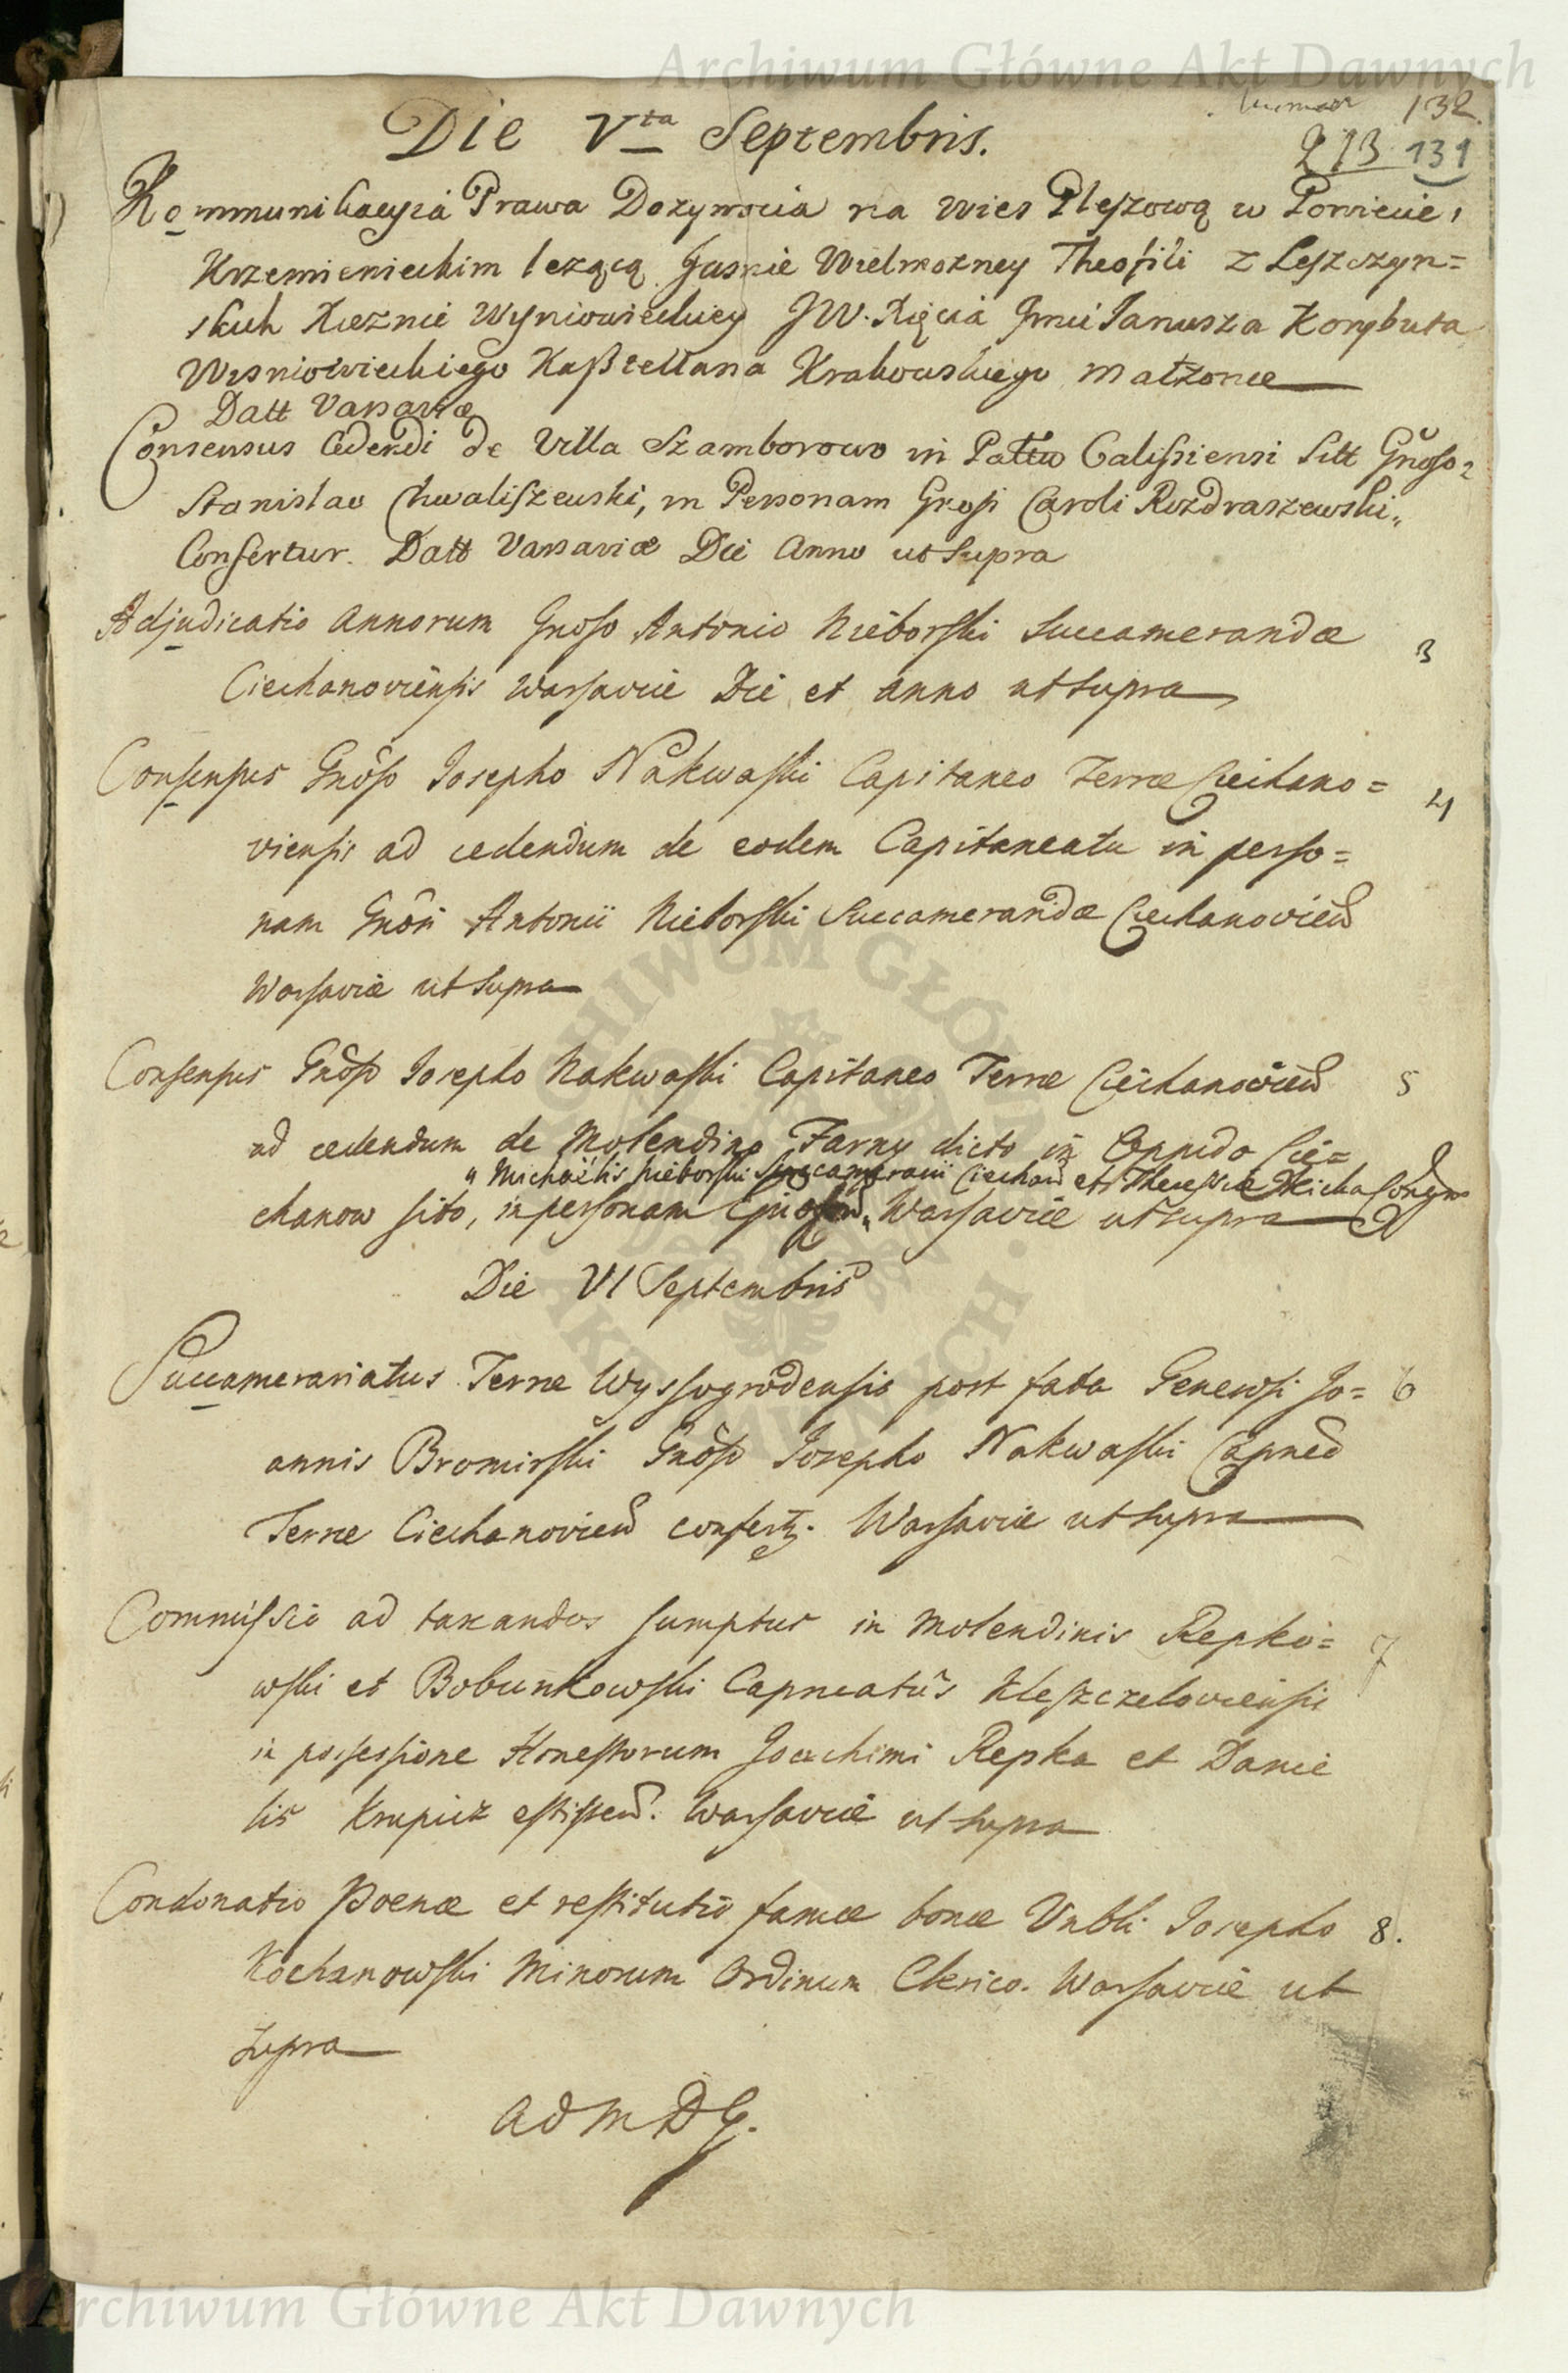 Archiwum Główne Akt Dawnych
132.
Die Vta Septembris.
273 131
Kommunikacyia Prawa Dozywocia na wies Pleszową w Powiecie,
Krzemienieckim lezącą Jasnie Wielmozney Theofili z Leszczyn=
skich Xięznie Wyniowieckiey JW. Xięcia Jmci Janusza Korybuta
Wisniowieckiego Kasztellana Krakowskiego małzonce
Datt Varsaviæ
Consensus Cedendi de Villa Szamborowo in Pattu Calissiensi Sitt Gnoso
Stanislao Chwaliszewski, in Personam Gnosi Caroli Rozdraszewski
Confertur. Datt Varsaviæ Die Anno ut Supra
Adjudicatio Annorum Gnoso Antonio Nieborski Succamerandæ 3
Ciechanoviensis Warsaviæ Die et anno ut supra
Consensus Gnoso Josepho Nakwaski Capitaneo Terræ Ciechano= 4
viensis ad cedendum de eodem Capitaneatu in perso=
nam Gnosi Antonii Nieborski Succamerandæ Ciechanovien
Warsaviæ ut supra
Consensus Gnoso Josepho Nakwaski Capitaneo Terræ Ciechanovien 5
ad cedendum de Molendino Farny dicto in Oppido Cie=
"Michaëlis Nieborski Succamerarii Ciechan et Theressiæ Conjugum
chanow sito, in personam Gnosorum" Warsaviæ ut supra
Die VI Septembris
Succamerariatus Terræ Wyssogrodensis post fata Generosi Jo= 6
annis Bromirski Gnoso Josepho Nakwaski Capneo
Terræ Ciechanovien confertr. Warsaviæ ut supra
Commissio ad taxandos sumptus in Molendinis Repko= 7
wski et Bobunkowski Capneatus Kleszczeloviensis
in possessione Honestorum Joachimi Repka et Danie
lis Krupicz existen. Warsaviæ ut supra
Condonatio Poenæ et restitutio famæ bonæ Vnbli Josepho 8.
Kochanowski Minorum Ordinum Clerico. Warsaviæ ut
supra
ADMDG.
ARCHIWUM GŁÓWNE AKT DAWNYCH
Archiwum Główne Akt Dawnych